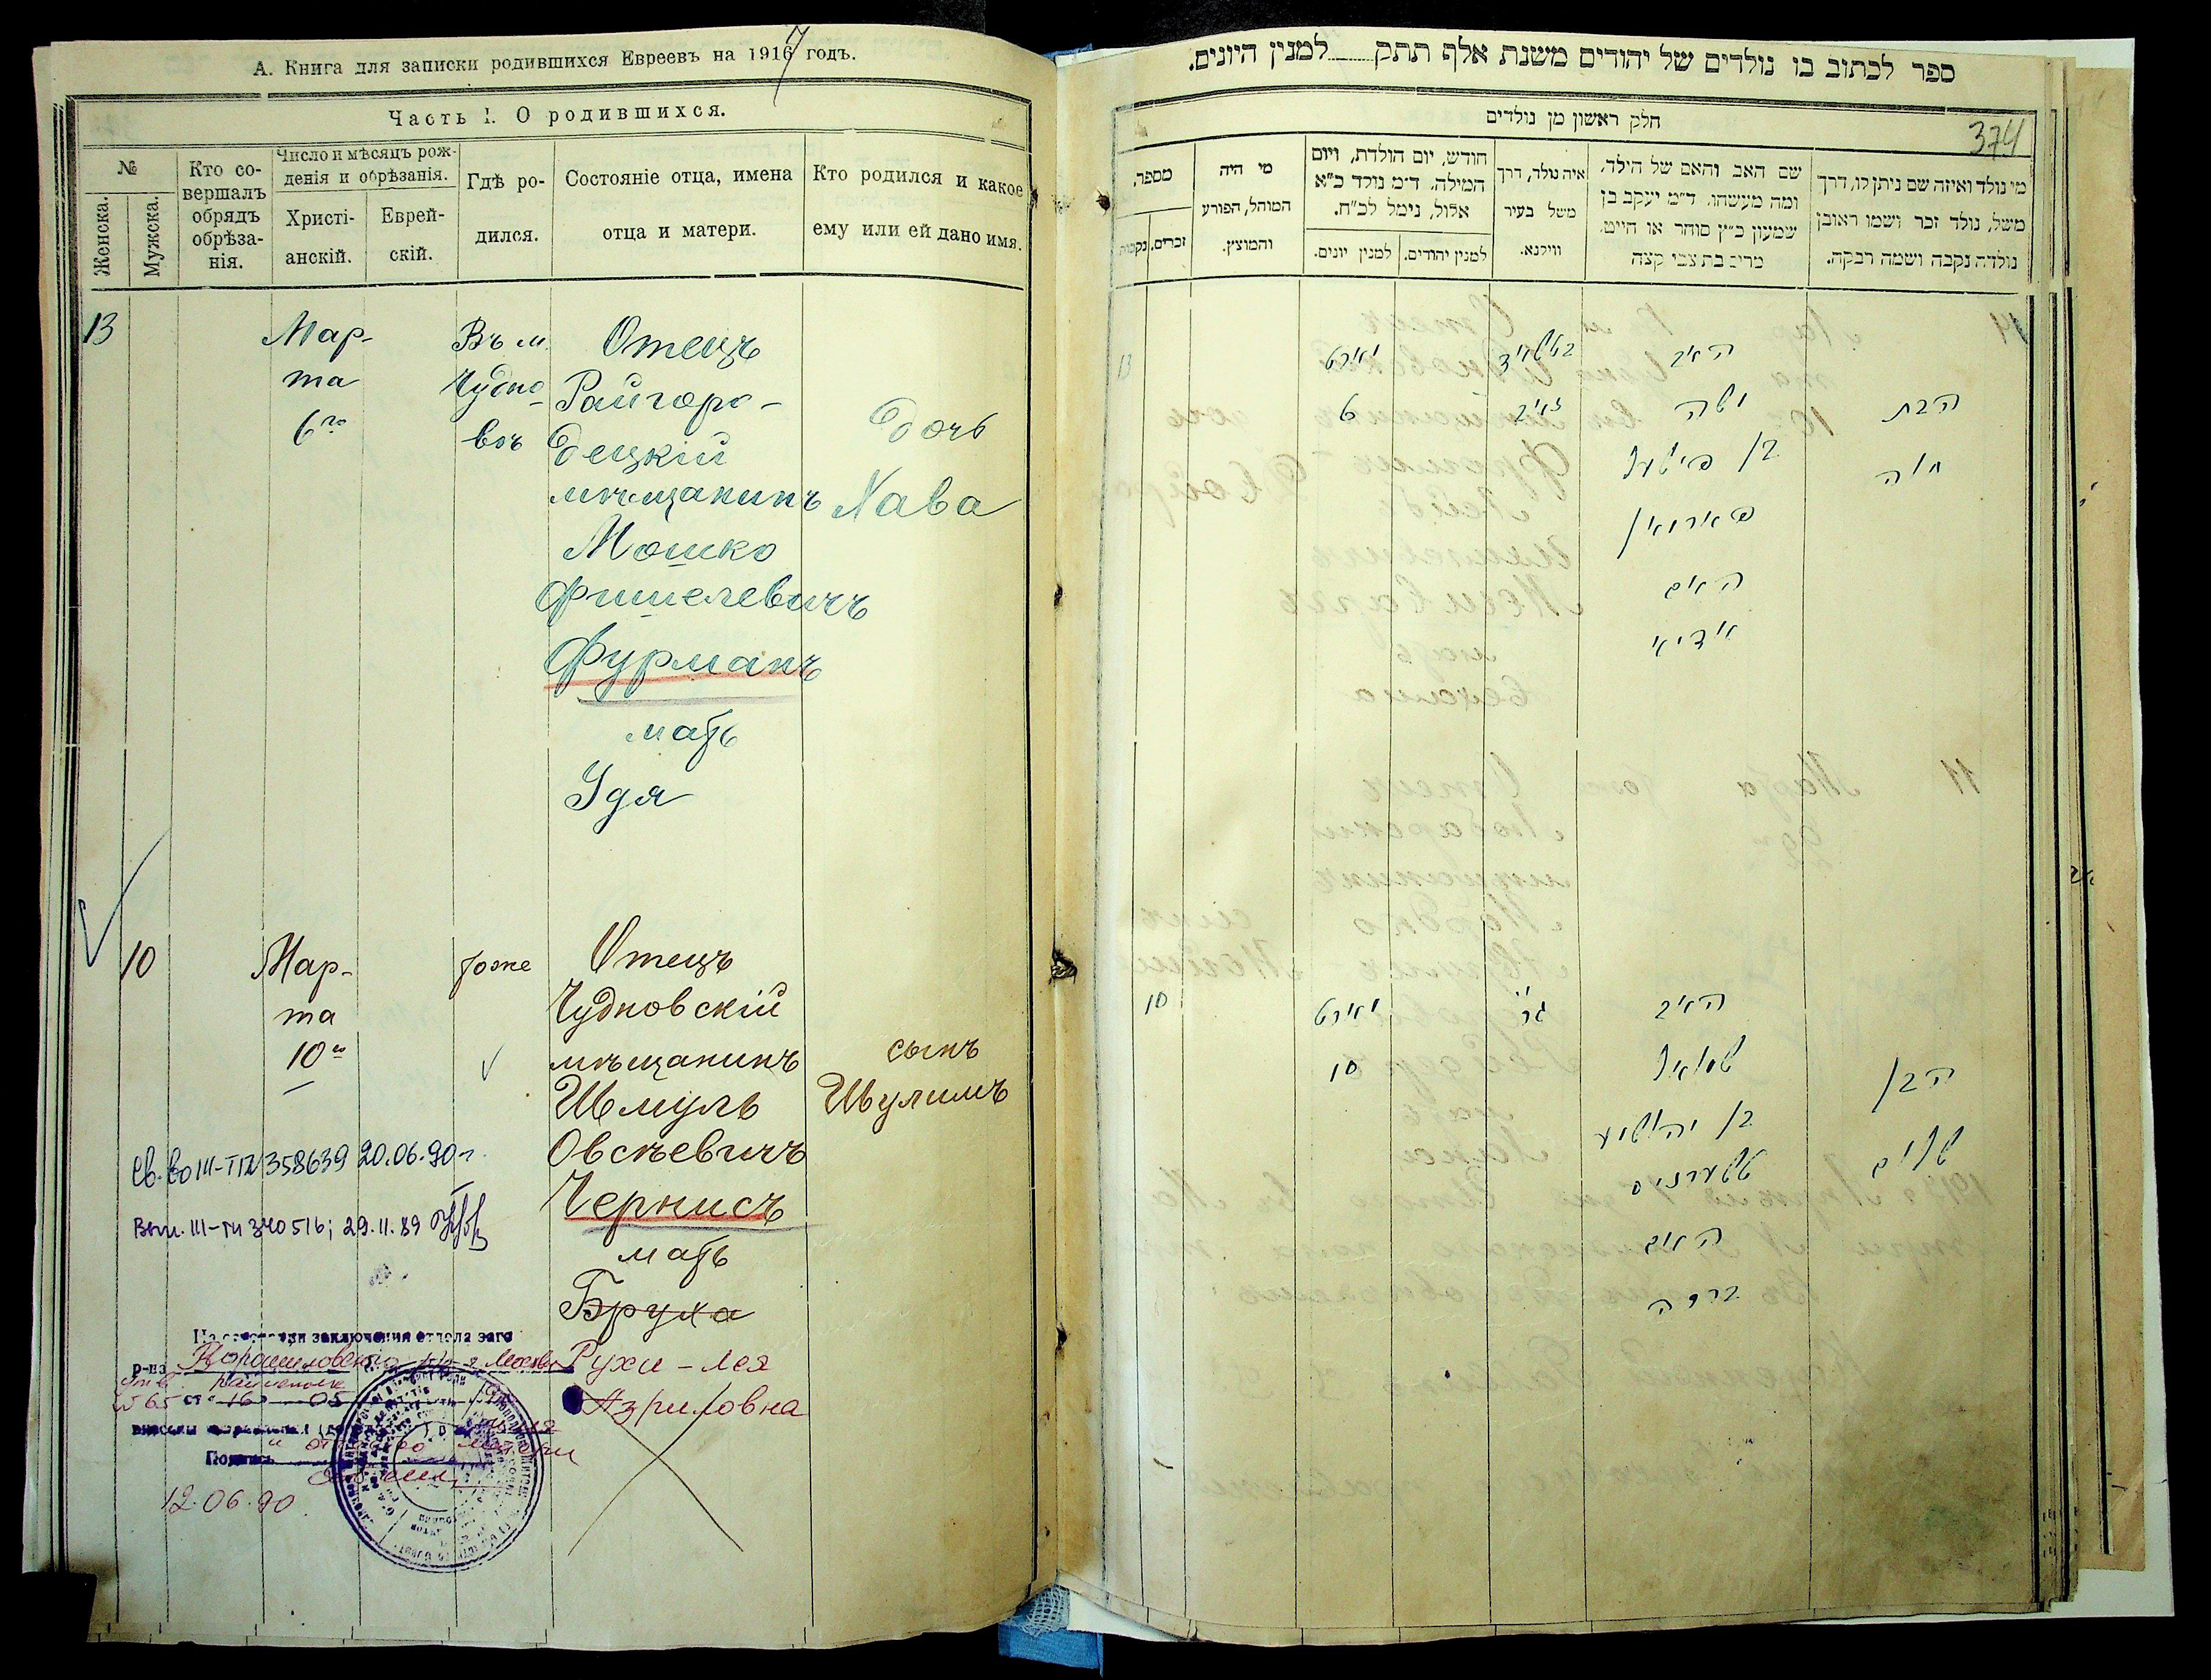 А. Книга для записки родившихся Евреевъ на 1916 7 годъ.
Часть I. О родившихся.
№
Женска.
Мужска.
Кто со-
вершалъ
обрядъ
обрѣза-
нія.
Число и мѣсяцъ рож-
денія и обрѣзанія.
Христі-
анскій.
Еврей-
скій.
Гдѣ ро-
дился.
Состояніе отца, имена
отца и матери.
Кто родился и какое
ему или ей дано имя.
13
Мар-
та
6го
Въ м.
Чудно-
вѣ
Отецъ
Райгоро-
децкій
мѣщанинъ
Мошко
Фишелевичъ
Фурманъ
мать
Удя
Дочь
Хава
10
Мар-
та
10го
тоже
Отецъ
Чудновскій
мѣщанинъ
Шмуль
Овсѣевичъ
Чернисъ
мать
Бруха
Рухи-Лея
Азриловна
сынъ
Шулимъ
Св-во III-ТП 358639 20.06.90г.
Вып. III-ТИ 340516; 29.11.89
заключения отдела загс
р-на Ворошиловского р-на г. Москвы
№ 65 от 16 05
внесены
Подпись
12.06.90
ספר לכתוב בו נולדים של יהודים משנת אלף תתק למנין היונים.
374
חלק ראשון מן נולדים
מספר.
זכרים.
נקבות
מי היה
המוהל, הפורע
והמוצץ.
חודש, יום הולדת, ויום
המילה. ד״מ נולד כ״א
אלול, נימל לכ״ח.
למנין יונים.
למנין יהודים.
איה נולד, דרך
משל בעיר
ווילנא.
שם האב והאם של הילד,
ומה מעשהו. ד״מ יעקב בן
שמעון כ״ץ סוחר או חייט.
מרים בת צבי קצה
מי נולד ואיזה שם ניתן לו, דרך
משל, נולד זכר ושמו ראובן
נולדה נקבה ושמה רבקה.
13
מארט
6
האב
משה
בן פישעל
פורמאן
האם
אידיא
הבת
חוה
10
מארט
10
גם
האב
שמואל
בן יהושע
טשערניס
האם
ברכה
הבן
שלום